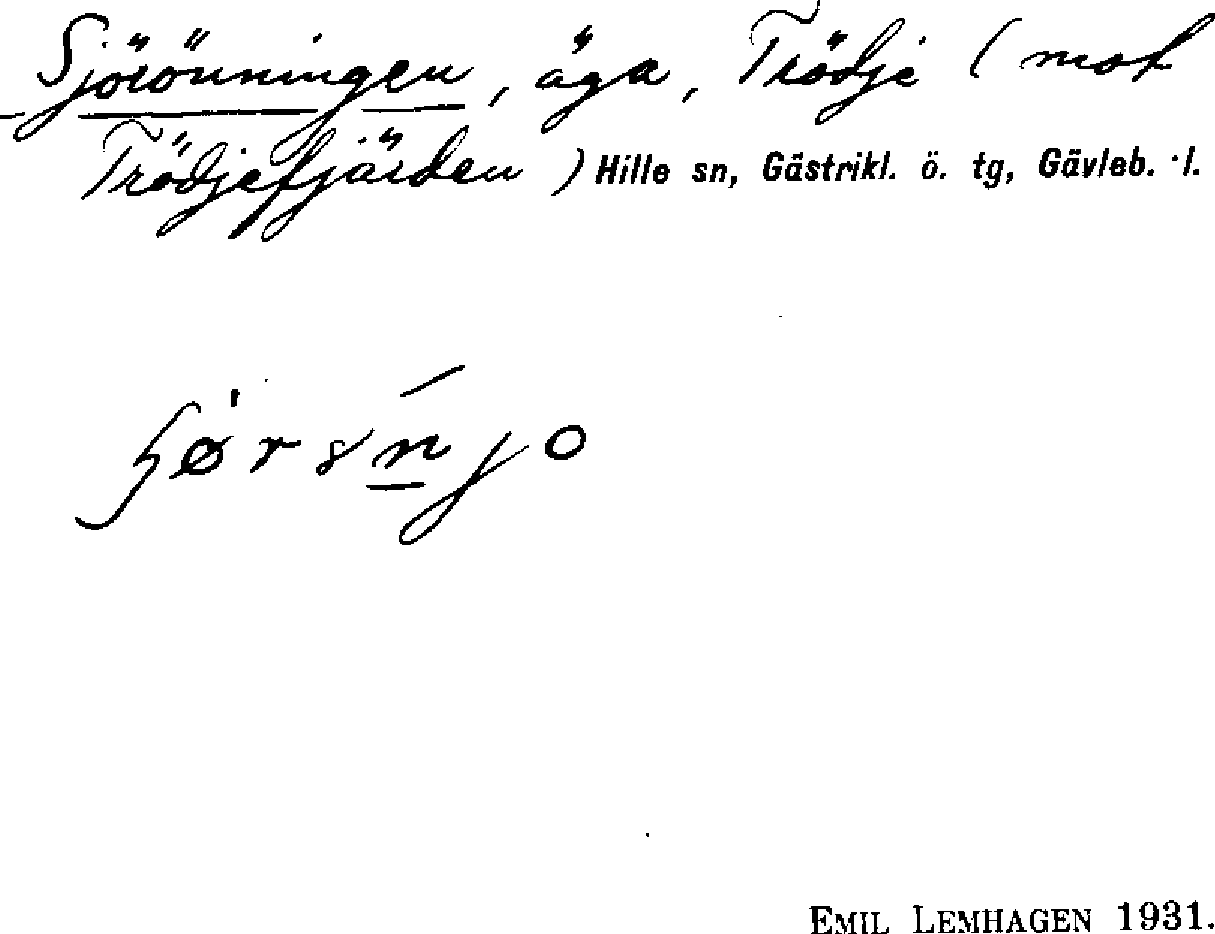 Sjörönningen, äga, Trödje (mot
Trödjefjärden) Hille sn, Gästrikl. ö. tg, Gävleb. l.
EMIL LEMHAGEN 1931.